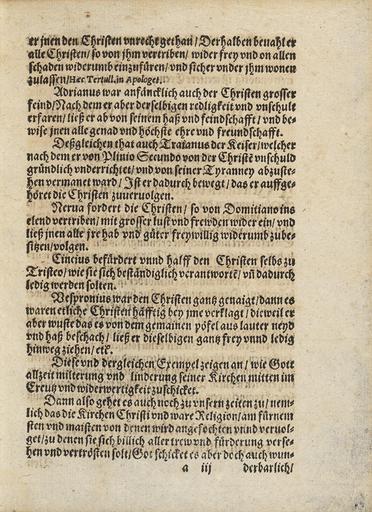 er jnen den Christen vnrecht gethan / Derhalben beualh er
alle Christen / so von jhm vertriben / wider frey vnd on allen
schaden widerumb einzufüren / vnd sicher vnder jhm wonen
zulassen / Hæc Tertull. in Apologet.
Adrianus war anfäncklich auch der Christen grosser
feind / Nach dem er aber derselbigen redligkeit vnd vnschult
erfaren / ließ er ab von seinem haß vnd feindschafft / vnd be-
wise jnen alle genad vnd höchste ehre vnd freundschafft.
Deßgleichen that auch Traianus der Keiser / welcher
nach dem er von Plinio Secundo von der Christē vnschuld
gründlich vnderrichtet / vnd von seiner Tyranney abzuste-
hen vermanet ward / Ist er dadurch bewegt / das er auffge-
höret die Christen zuueruolgen.
Nerua fordert die Christen / so von Domitiano ins
elend vertriben / mit grosser lust vnd frewden wider ein / vnd
ließ jnen alle jre hab vnd güter freywillig widerumb zube-
sitzen / volgen.
Cincius befürdert vnnd halff den Christen selbs zu
Tristeo / wie sie sich bestăndiglich verantwortē / vn̄ dadurch
ledig werden solten.
Vespronius war den Christen gantz genaigt / dann es
waren etliche Christen häfftig bey jme verklagt / dieweil er
aber wuste das es von dem gemainen pöfel aus lauter neyd
vnd haß beschach / ließ er dieselbigen gantz frey vnnd ledig
hinweg ziehen / etc.
Diese vnd dergleichen Exempel zeigen an / wie Gott
allzeit milterung vnd linderung seiner Kirchen mitten im
Creutz vnd widerwertigkeit zuschicket.
Dann also gehet es auch noch zu vnsern zeiten zu / nem-
lich das die Kirchen Christi vnd ware Religion / am fürnem
sten vnd maisten von denen wird angefochten vnnd veruol-
get / zu denen sie sich billich aller trew vnd fürderung verse-
hen vnd vertrösten solt / Got schicket es aber doch auch wun-
a iij derbarlich /